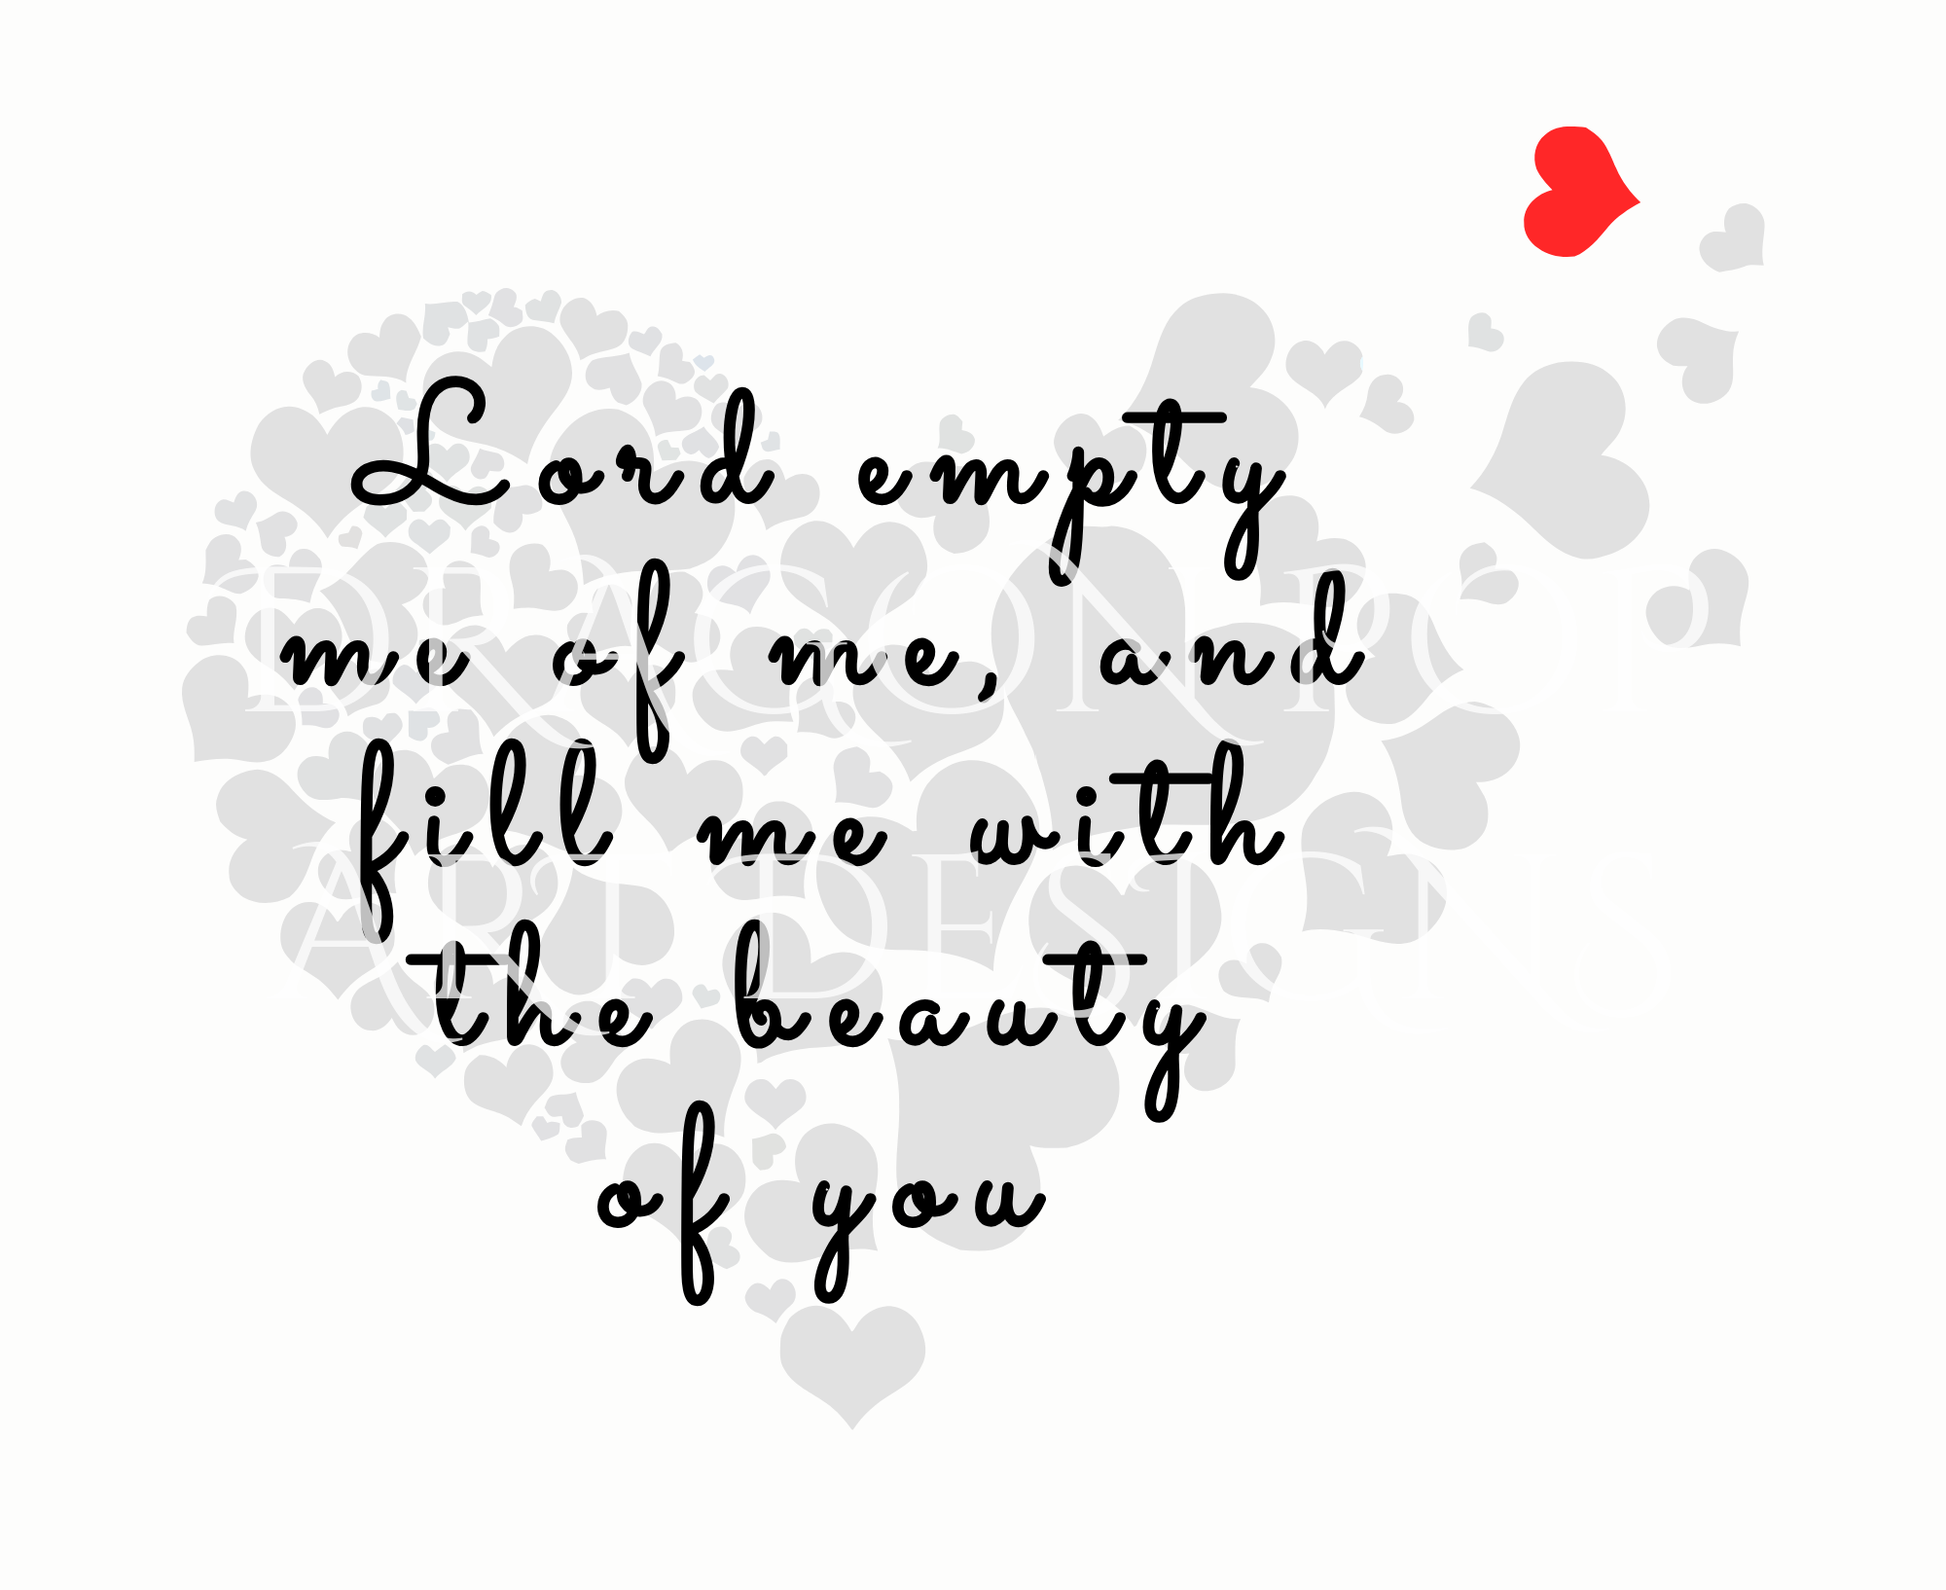 Lord empty
me of me, and
DRAGON POP
fill me with
ART DESIGNS
the beauty
of you